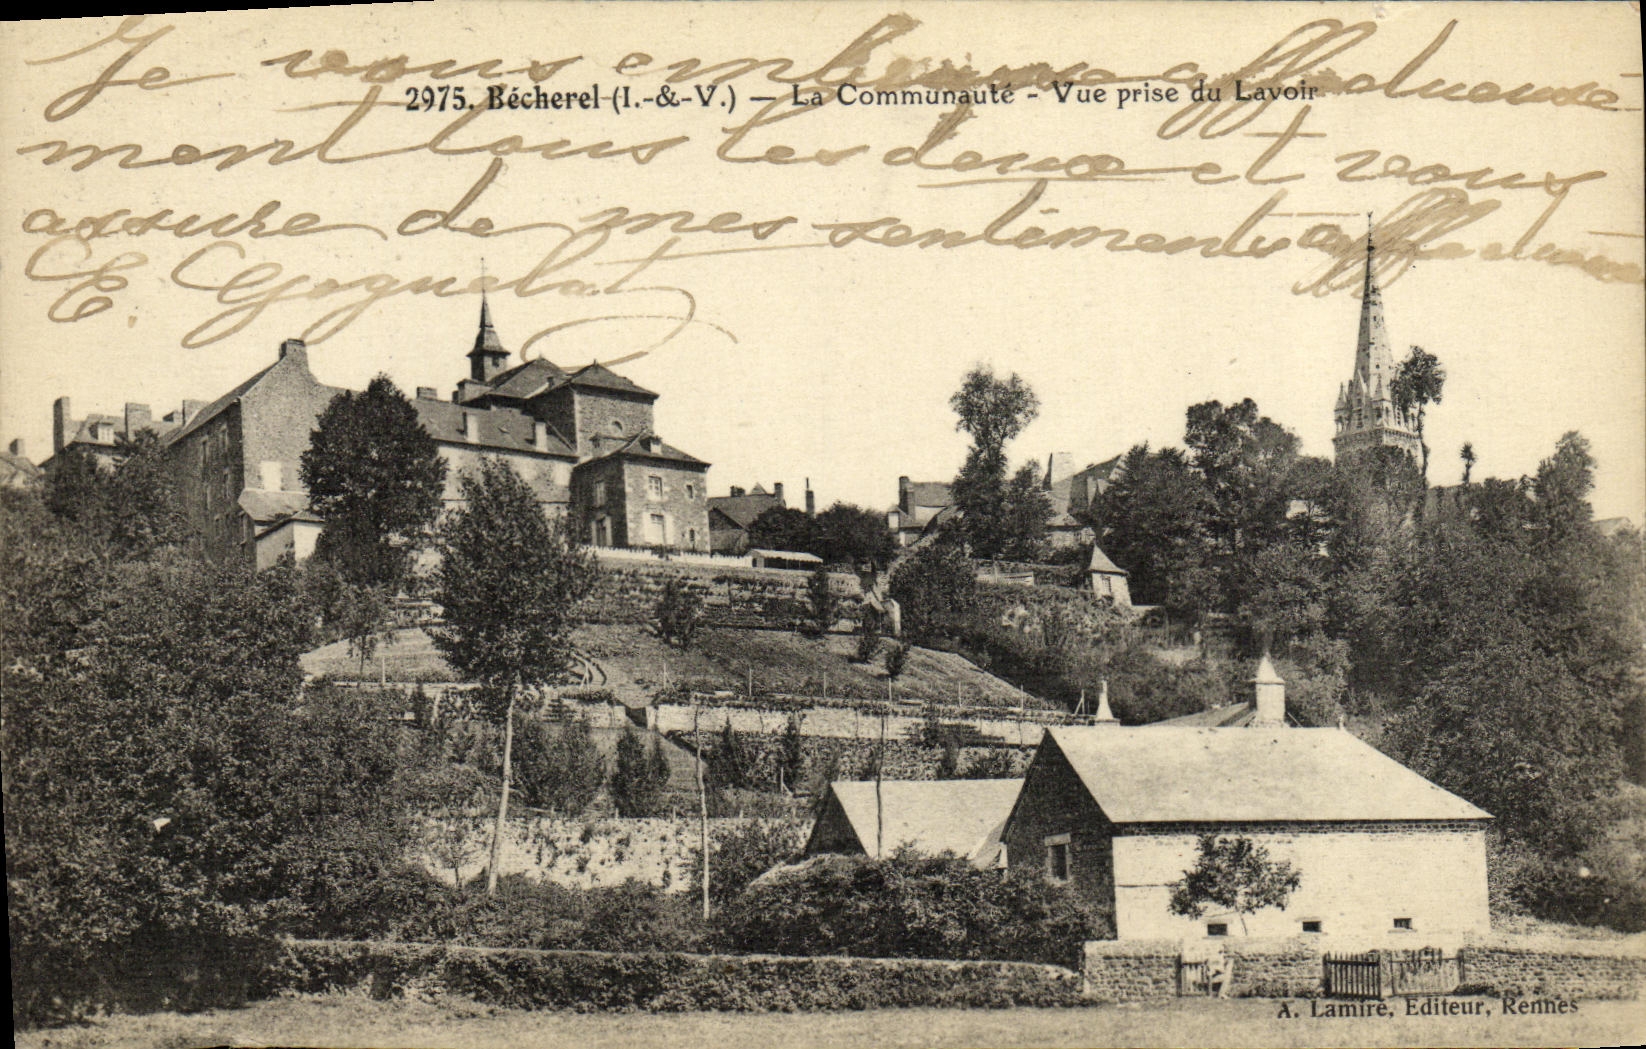 Je vous embrasse affectueuse-
2975. Bécherel (I.-&-V.) — La Communauté - Vue prise du Lavoir
ment tous les deux et vous
assure de mes sentiments affectueux
E.
A. Lamiré, Editeur, Rennes